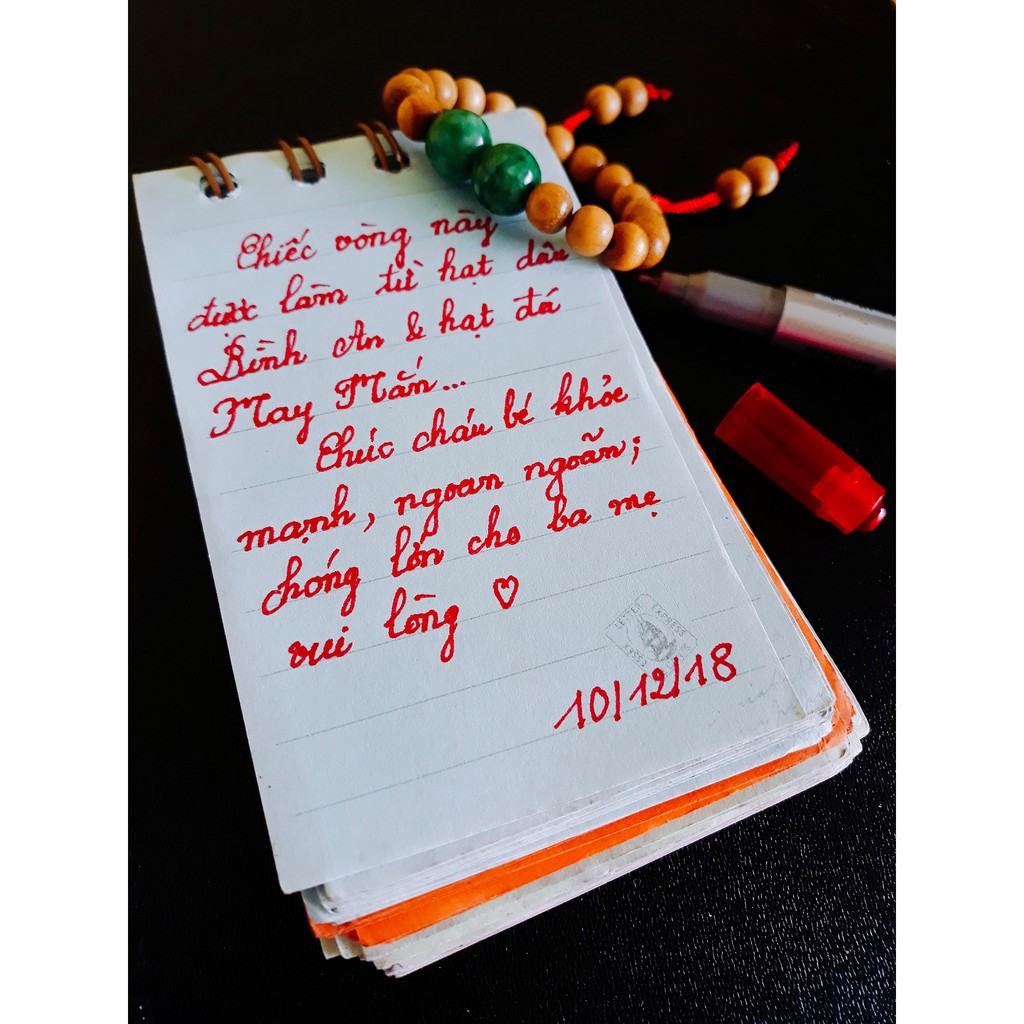 Chiếc vòng này
được làm từ hạt dâu
Bình An & hạt đá
May Mắn...
Chúc cháu bé khỏe
mạnh, ngoan ngoãn;
chóng lớn cho ba mẹ
vui lòng ♡
LETTER EXPRESS
10/12/18